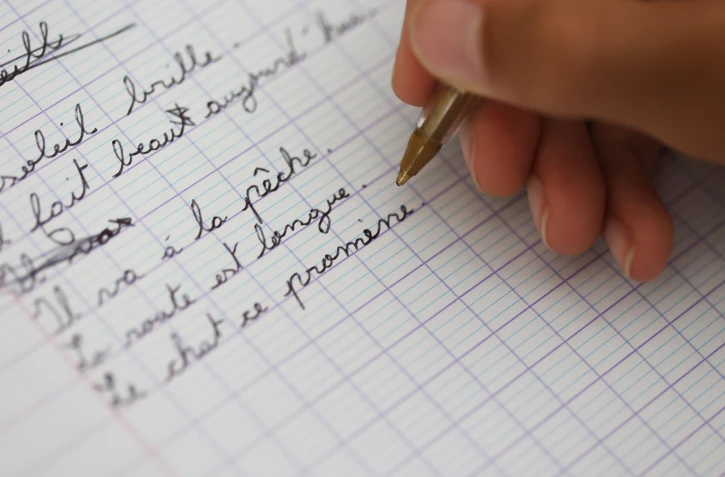 soleil brille.
fait beau aujourd'hui.
Il va à la pêche.
La route est longue.
Le chat se promène.